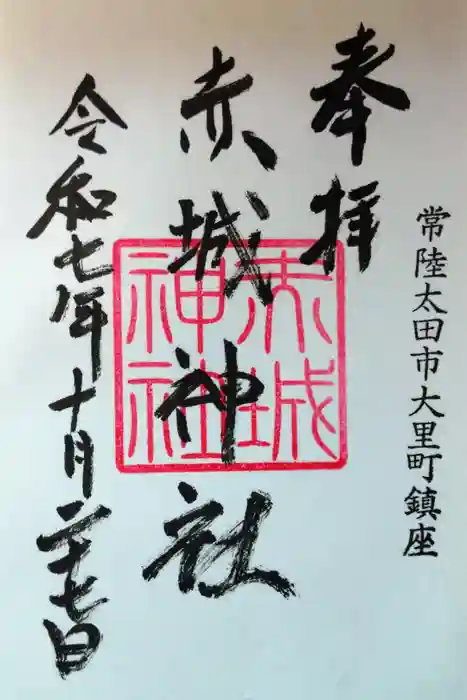 常陸太田市大里町鎮座
奉拝
赤城神社
令和七年十月二十七日
赤城
神社